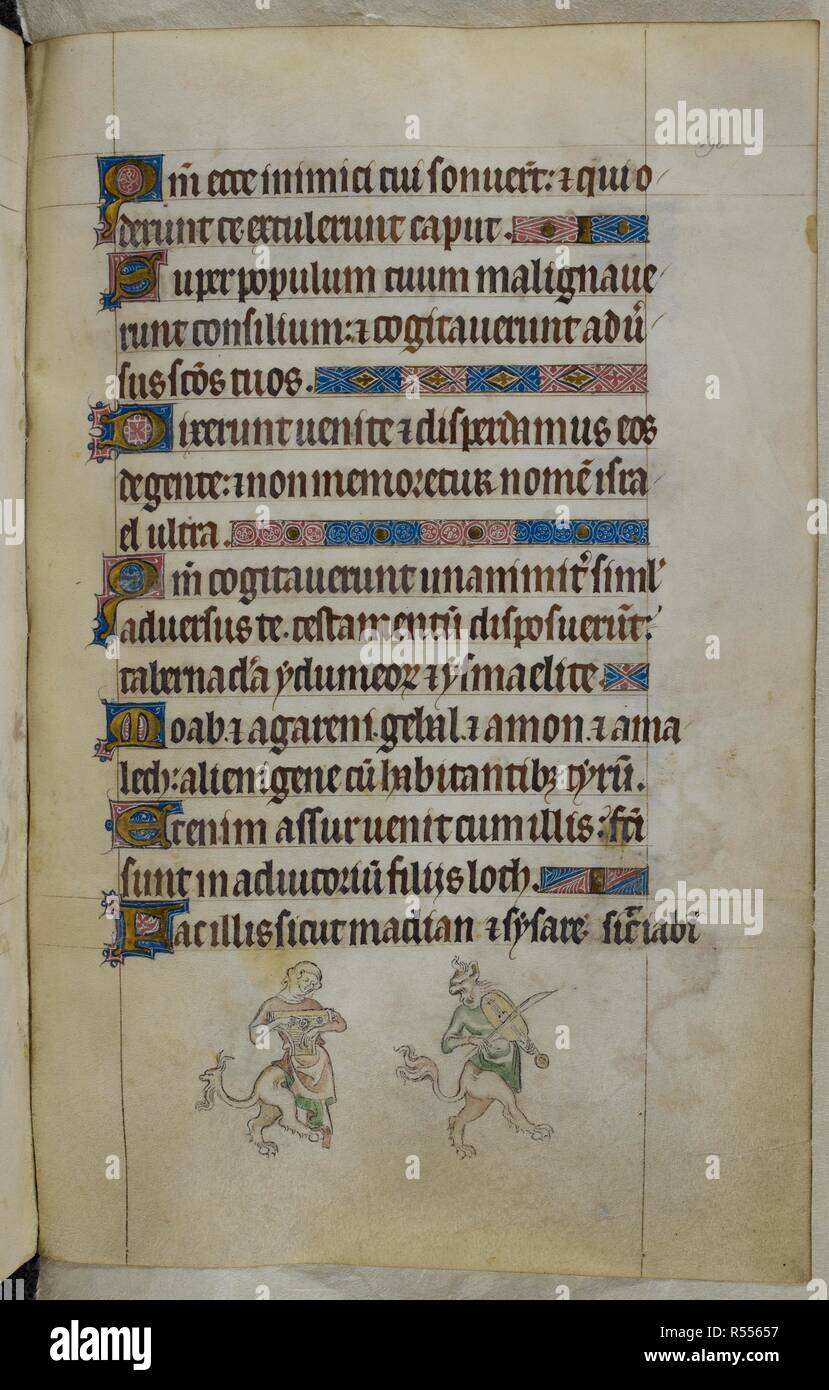 Qm̄ ecce inimici tui sonuer̄t: ⁊ qui o
derunt te extulerunt caput.
Super populum tuum malignaue
runt consilium: ⁊ cogitauerunt adu᷑
sus sc̄os tuos.
Dixerunt uenite ⁊ disperdamus eos
de gente: ⁊ non memoretur nomē isra
el ultra.
Qm̄ cogitauerunt unanimit᷑ siml᷑
aduersus te. testamentū disposuerūt:
tabernac᷑la ydumeoꝝ ⁊ ysmaelite.
Moab. ⁊ agareni. gebal. ⁊ amon. ⁊ ama
lech: alienigene cū habitantibꝫ tyrū.
Etenim assur uenit cum illis: fc̄i
sunt in adiutoriū filijs loth.
Fac illis sicut madian ⁊ sysare sic᷑ iabī
alamy
Image ID: R55657
www.alamy.com